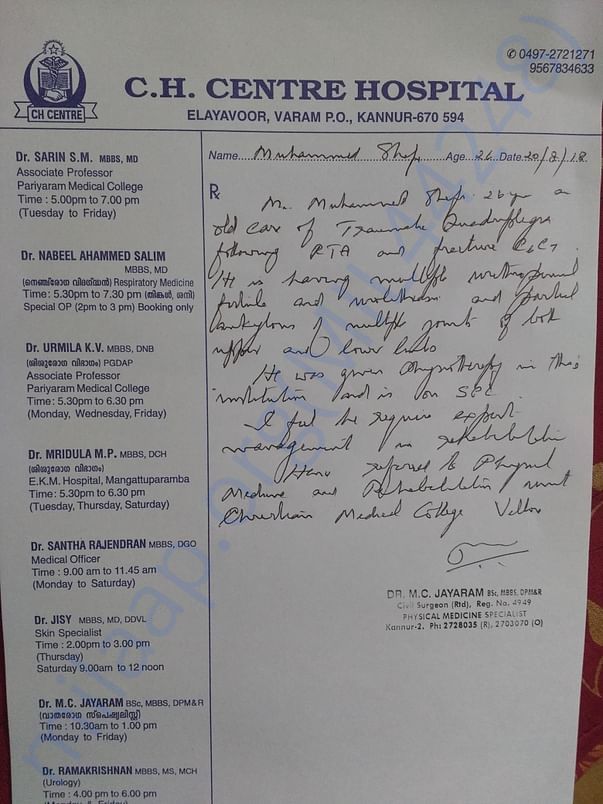 ✆ 0497-2721271
9567834633
CH CENTRE
C.H. CENTRE HOSPITAL
ELAYAVOOR, VARAM P.O., KANNUR-670 594
Dr. SARIN S.M. MBBS, MD
Associate Professor
Pariyaram Medical College
Time : 5.00pm to 7.00 pm
(Tuesday to Friday)
Dr. NABEEL AHAMMED SALIM
MBBS, MD
(നെഞ്ച്‌രോഗ വിദഗ്ദ്ധൻ) Respiratory Medicine
Time: 5.30pm to 7.30 pm (തിങ്കൾ, ശനി)
Special OP (2pm to 3 pm) Booking only
Dr. URMILA K.V. MBBS, DNB
(ശിശുരോഗ വിഭാഗം) PGDAP
Associate Professor
Pariyaram Medical College
Time: 5.30pm to 6.30 pm
(Monday, Wednesday, Friday)
Dr. MRIDULA M.P. MBBS, DCH
(ശിശുരോഗ വിഭാഗം)
E.K.M. Hospital, Mangattuparamba
Time: 5.30pm to 6.30 pm
(Tuesday, Thursday, Saturday)
Dr. SANTHA RAJENDRAN MBBS, DGO
Medical Officer
Time : 9.00 am to 11.45 am
(Monday to Saturday)
Dr. JISY MBBS, MD, DDVL
Skin Specialist
Time : 2.00pm to 3.00 pm
(Thursday)
Saturday 9.00am to 12 noon
Dr. M.C. JAYARAM BSc, MBBS, DPM&R
(വാതരോഗ സ്പെഷ്യലിസ്റ്റ്)
Time : 10.30am to 1.00 pm
(Monday to Friday)
Dr. RAMAKRISHNAN MBBS, MS, MCH
(Urology)
Time : 4.00 pm to 6.00 pm
Name Muhammed Age 26 Date 20/8/18
℞
Mr. Muhammed 26 yr a
old case of Traumatic Quadriplegia
following RTA and fracture C6C7.
He is having multiple
and and partial
ankylosis of multiple joints of both
upper and lower limbs
He was given Physiotherapy in this
institution and is on SPC.
I feel he require expert
management in rehabilitation
Hence referred to Physical
Medicine and Rehabilitation unit
Christian Medical College Vellore
DR. M.C. JAYARAM BSc, MBBS, DPM&R
Civil Surgeon (Rtd), Reg. No. 4949
PHYSICAL MEDICINE SPECIALIST
Kannur-2. Ph: 2728035 (R), 2703070 (O)